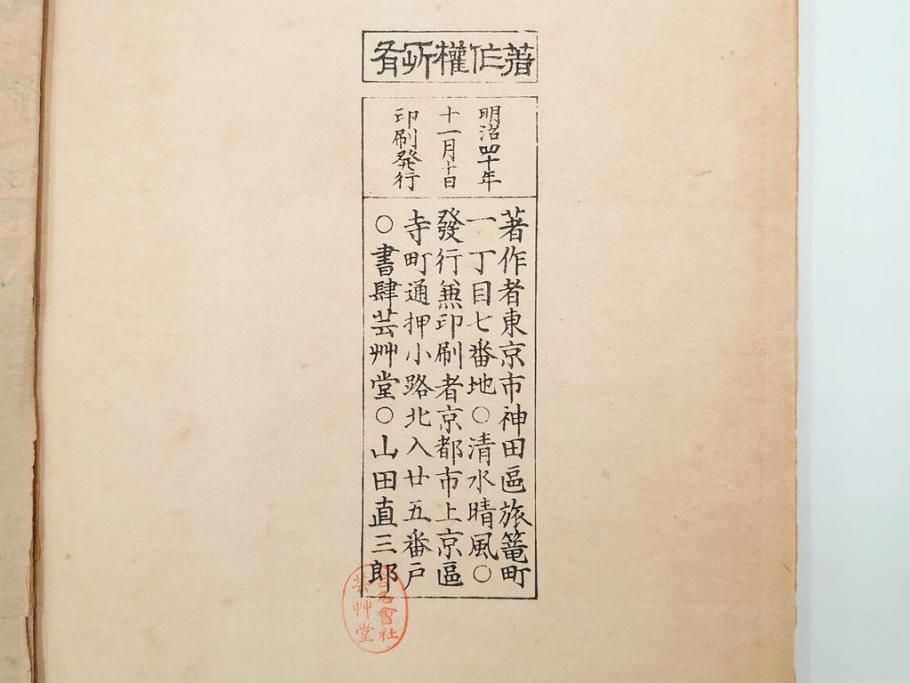 著作權所有
明治四十年
十一月十日
印刷發行
著作者東京市神田區旅篭町
一丁目七番地○清水晴風○
發行兼印刷者京都市上京區
寺町通押小路北入廿五番戸
○書肆芸艸堂○山田直三郎
合名會社
芸艸堂